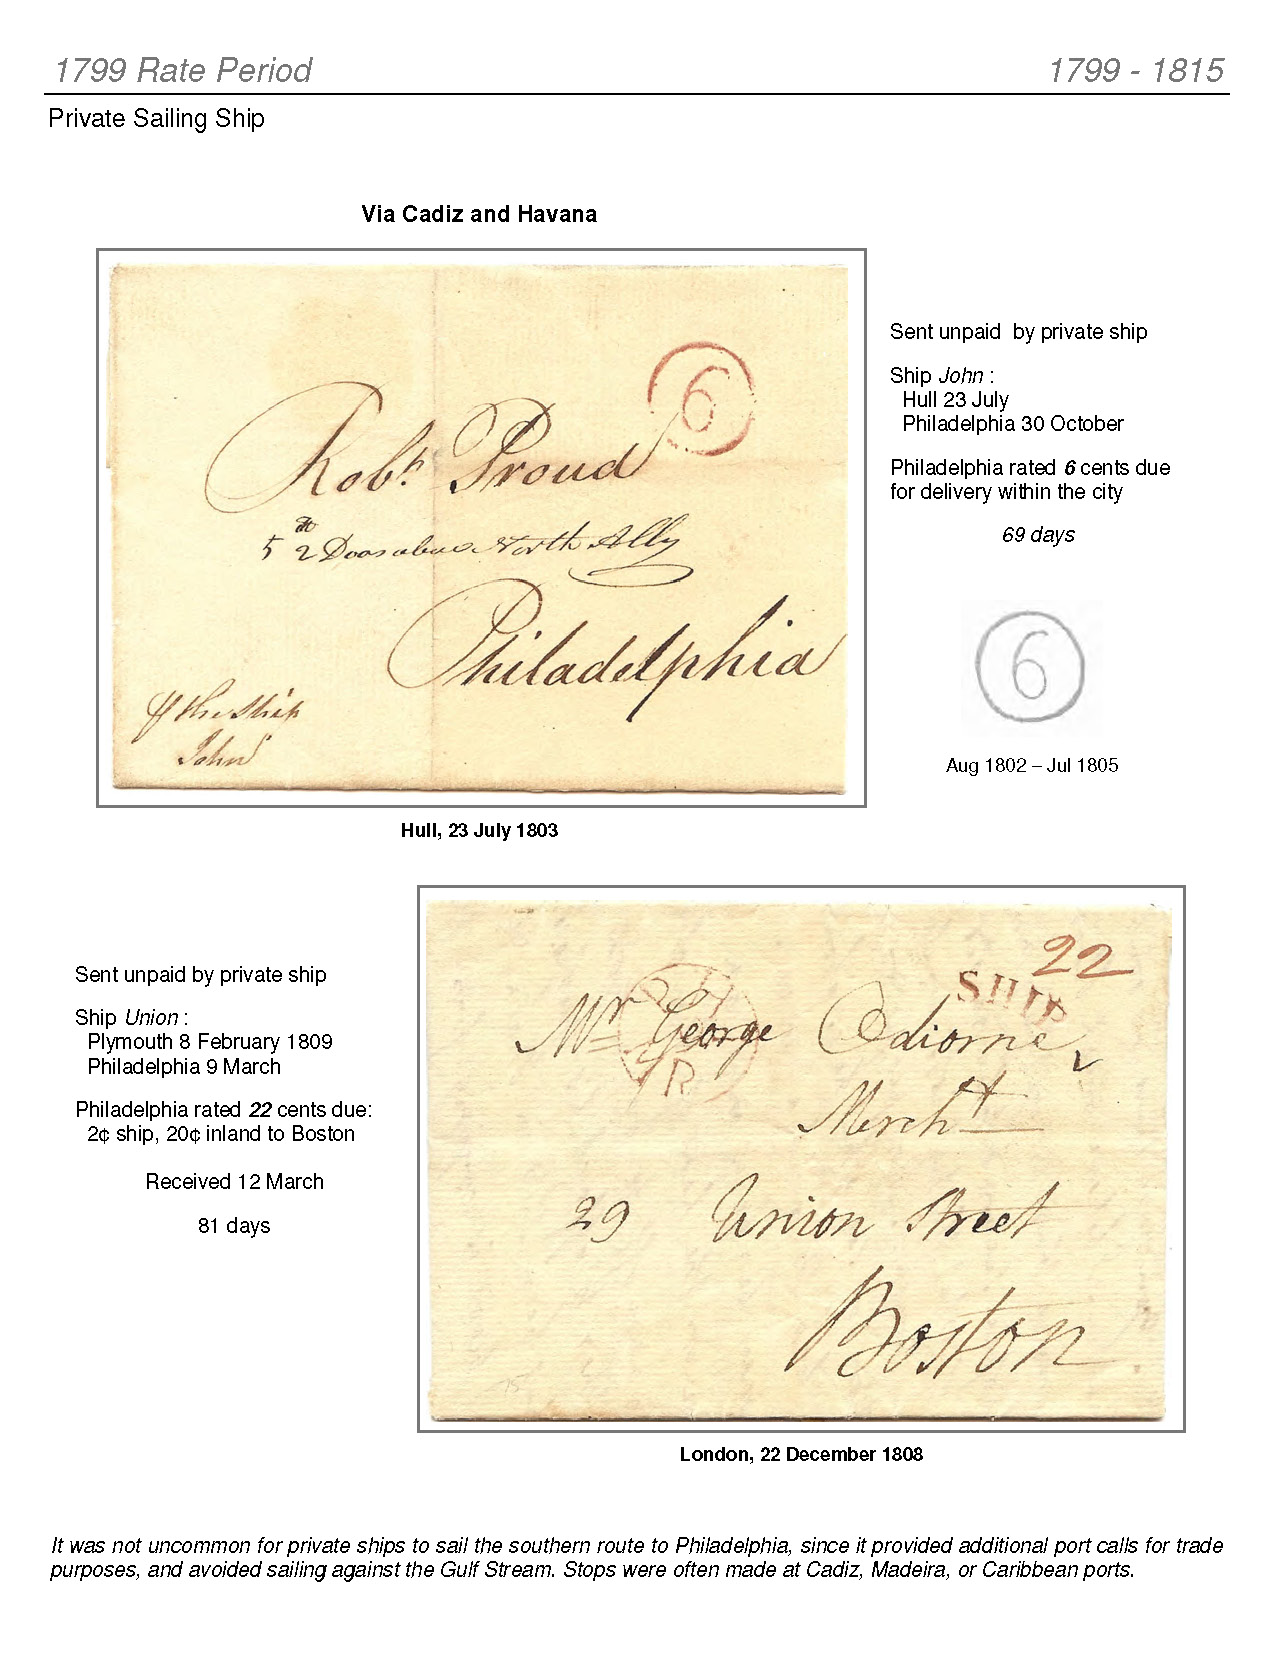 1799 Rate Period 1799 - 1815
Private Sailing Ship
Via Cadiz and Havana
6
Robt. Proud
5 th 2 Doors above North Ally
Philadelphia
the Ship
John
Sent unpaid by private ship
Ship John :
Hull 23 July
Philadelphia 30 October
Philadelphia rated 6 cents due
for delivery within the city
69 days
6
Aug 1802 – Jul 1805
Hull, 23 July 1803
Sent unpaid by private ship
Ship Union :
Plymouth 8 February 1809
Philadelphia 9 March
Philadelphia rated 22 cents due:
2¢ ship, 20¢ inland to Boston
Received 12 March
81 days
22
SHIP
Mr George Odiorne
Mercht
29 Union Street
Boston
London, 22 December 1808
It was not uncommon for private ships to sail the southern route to Philadelphia, since it provided additional port calls for trade
purposes, and avoided sailing against the Gulf Stream. Stops were often made at Cadiz, Madeira, or Caribbean ports.